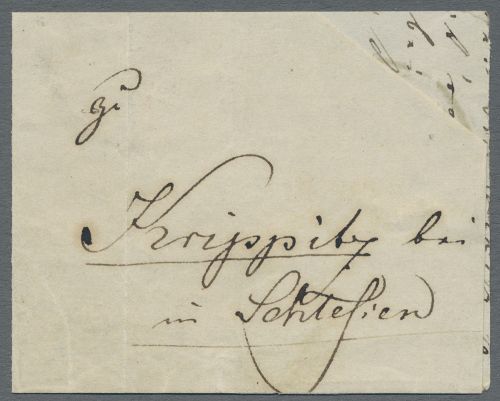 zu
Krippitz bei
in Schlesien